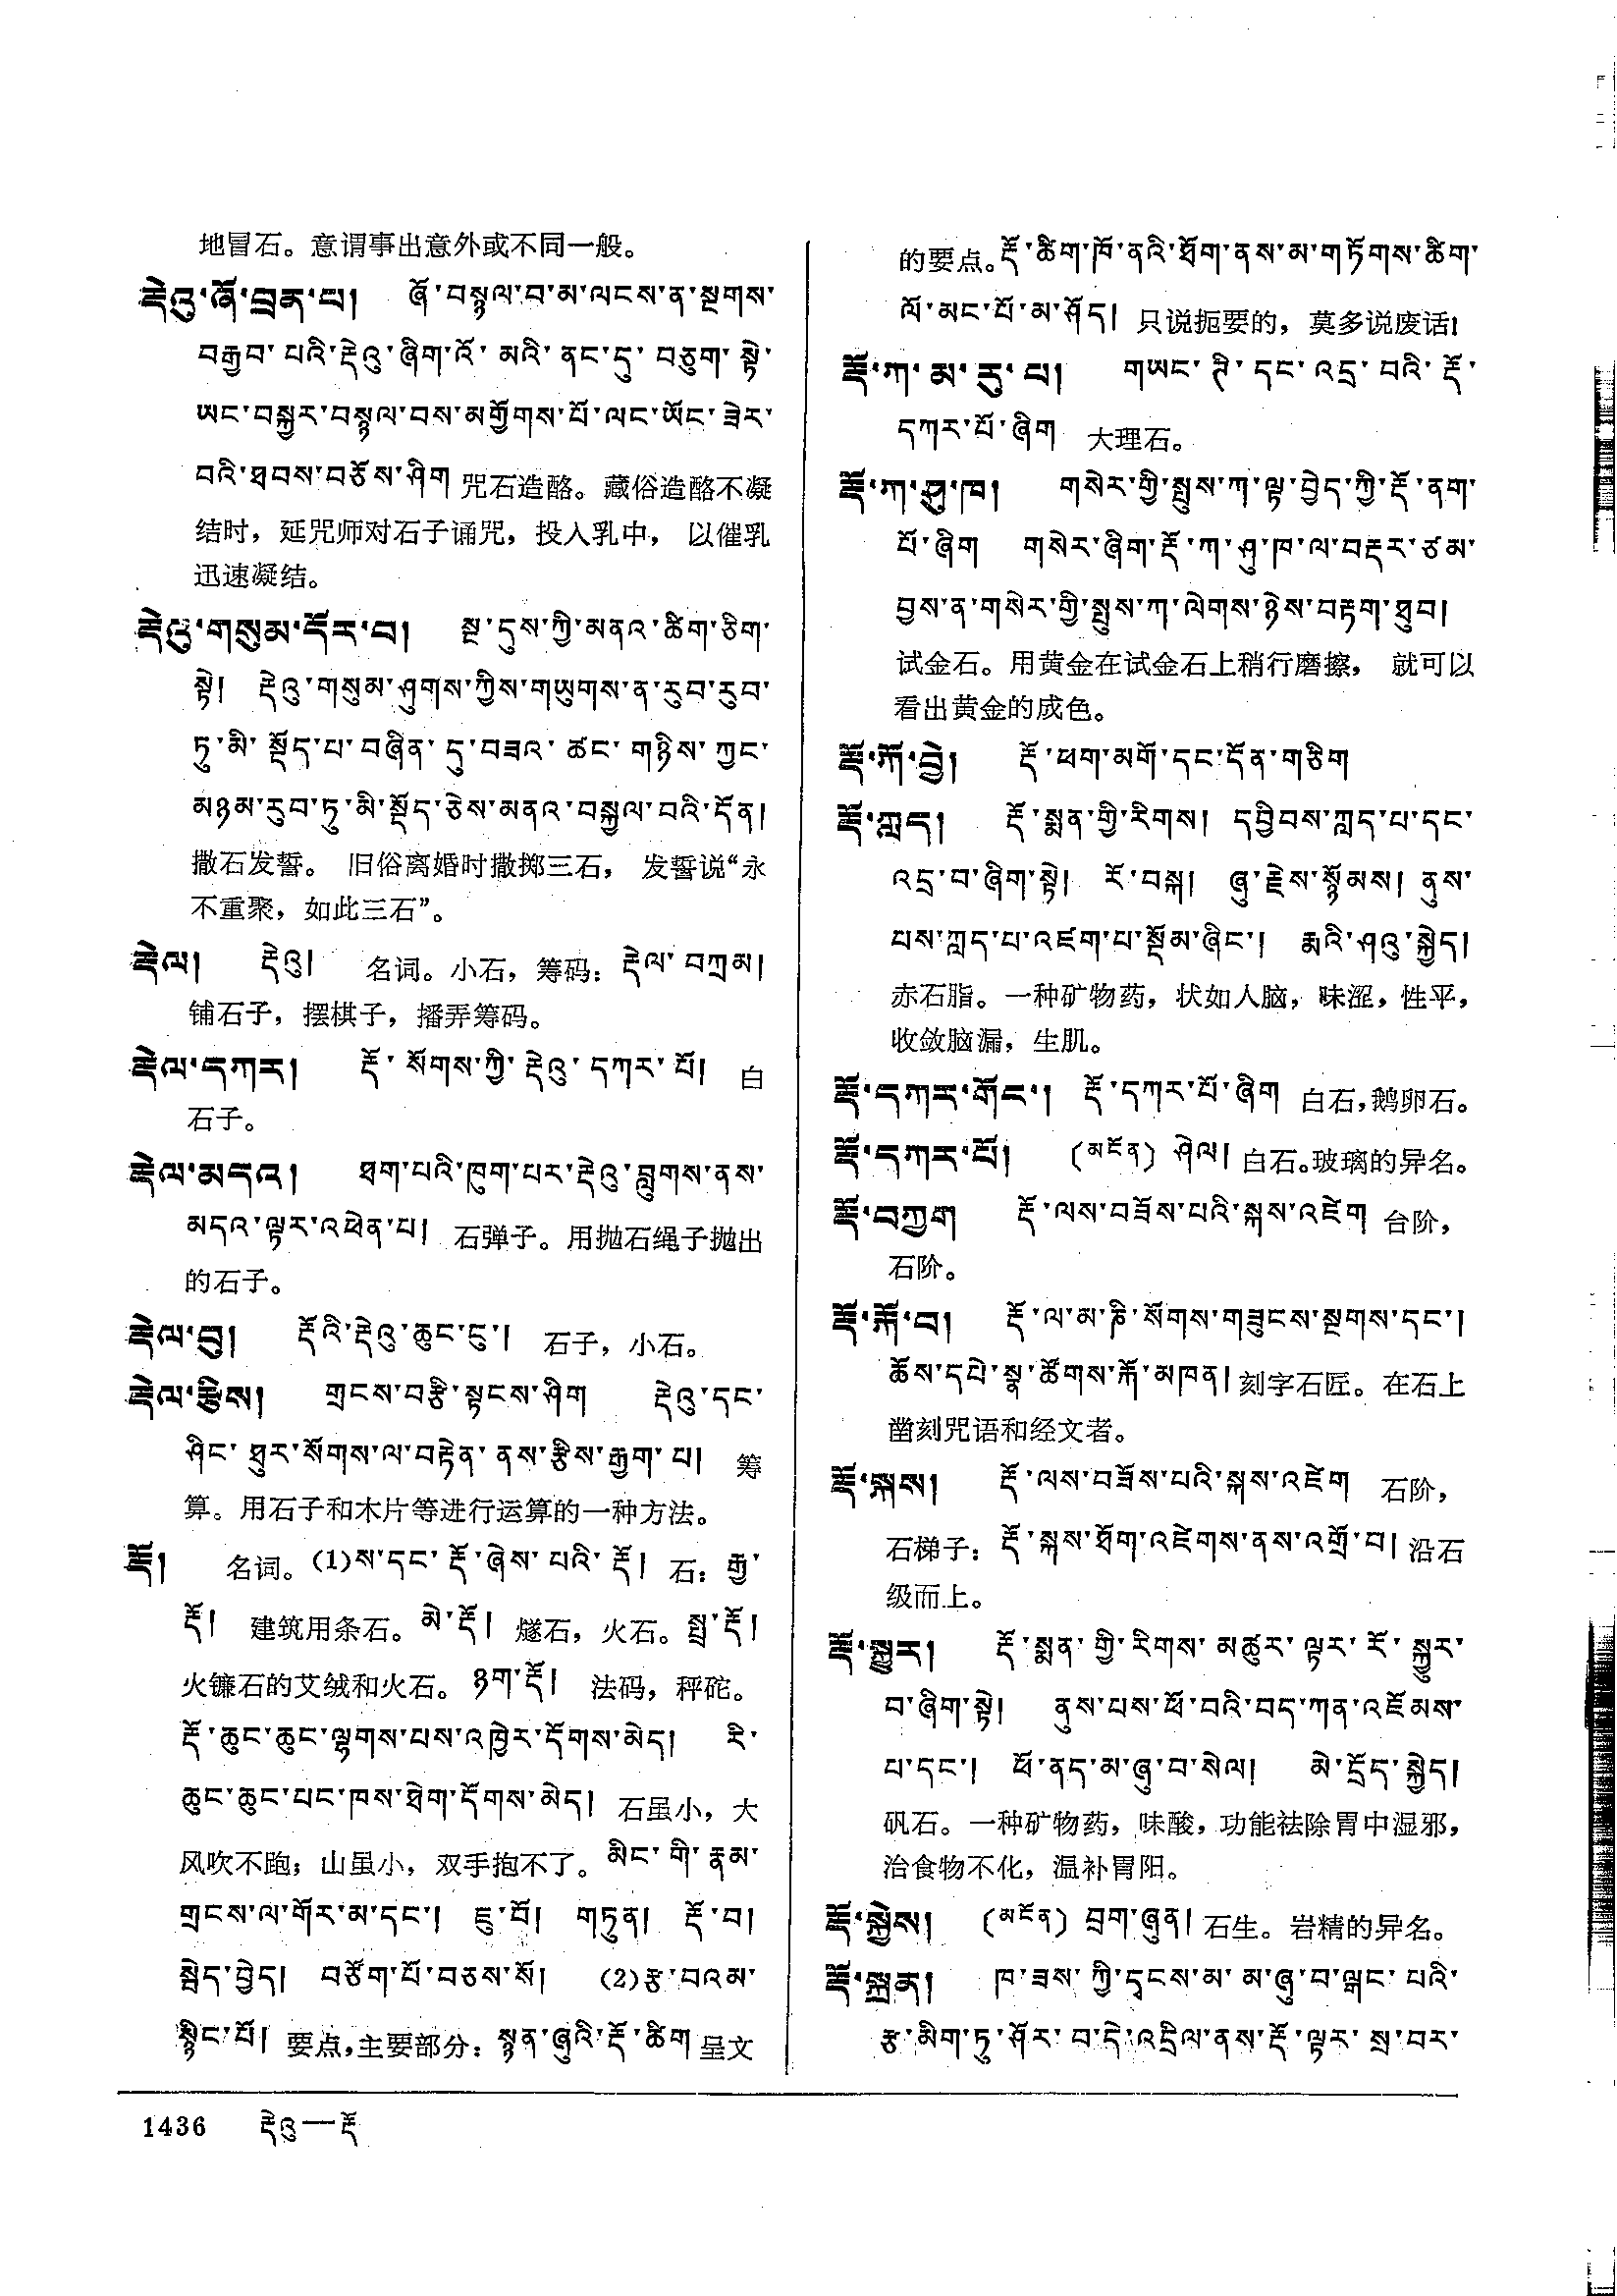 地冒石。意谓事出意外或不同一般。
རྡེའུ་ཞོ་བྲན་པ། ཞོ་བསྙལ་བ་མ་ལངས་ན་སྔགས་
བརྒྱབ་པའི་རྡེའུ་ཞིག་འོ་མའི་ནང་དུ་བཅུག་སྟེ་
ཡང་བསྐྱར་བསྙལ་བས་མགྱོགས་པོ་ལང་ཡོང་ཟེར་
བའི་ཐབས་བཅོས་ཤིག 咒石造酪。藏俗造酪不凝
结时，延咒师对石子诵咒，投入乳中，以催乳
迅速凝结。
རྡེའུ་གསུམ་དོར་བ། སྔ་དུས་ཀྱི་མནའ་ཚིག་ཅིག་
སྟེ། རྡེའུ་གསུམ་ཤུགས་ཀྱིས་གཡུགས་ན་རུབ་རུབ་
ཏུ་མི་སྡོད་པ་བཞིན་དུ་བཟའ་ཚང་གཉིས་ཀྱང་
མཉམ་རུབ་ཏུ་མི་སྡོད་ཅེས་མནའ་བསྐྱལ་བའི་དོན།
撒石发誓。旧俗离婚时撒掷三石，发誓说“永
不重聚，如此三石”。
རྡེལ། རྡེའུ། 名词。小石，筹码：རྡེལ་བཀྲམ།
铺石子，摆棋子，播弄筹码。
རྡེལ་དཀར། རྡོ་སོགས་ཀྱི་རྡེའུ་དཀར་པོ། 白
石子。
རྡེལ་མདའ། ཐག་པའི་ཁུག་པར་རྡེའུ་བླུགས་ནས་
མདའ་ལྟར་འཕེན་པ། 石弹子。用抛石绳子抛出
的石子。
རྡེལ་བུ། རྡོའི་རྡེའུ་ཆུང་ངུ་། 石子，小石。
རྡེལ་རྩིས། གྲངས་བརྩི་སྟངས་ཤིག རྡེའུ་དང་
ཤིང་ཐུར་སོགས་ལ་བརྟེན་ནས་རྩིས་རྒྱག་པ། 筹
算。用石子和木片等进行运算的一种方法。
རྡོ། 名词。(1)ས་དང་རྡོ་ཞེས་པའི་རྡོ། 石：རྒྱ་
རྡོ། 建筑用条石。མེ་རྡོ། 燧石，火石。སྤྲ་རྡོ།
火镰石的艾绒和火石。ཉག་རྡོ། 法码，秤砣。
རྡོ་ཆུང་ཆུང་ལྷགས་པས་འཁྱེར་དོགས་མེད། རི་
ཆུང་ཆུང་པང་ཁས་ཐེག་དོགས་མེད། 石虽小，大
风吹不跑；山虽小，双手抱不了。མིང་གི་རྣམ་
གྲངས་ལ་གོར་མ་དང་། ཇུ་བོ། གཏུན། རྡོ་བ།
སྲེད་བྱེད། བཙོག་པོ་བཅས་སོ། (2)རྩ་བའམ་
སྙིང་པོ། 要点，主要部分：སྙན་ཞུའི་རྡོ་ཚིག 呈文
的要点。རྡོ་ཚིག་ཁོ་ནའི་ཐོག་ནས་མ་གཏོགས་ཚིག་
ལོ་མང་པོ་མ་ཤོད། 只说扼要的，莫多说废话！
རྡོ་ཀ་མ་རུ་པ། གཡང་ཊི་དང་འདྲ་བའི་རྡོ་
དཀར་པོ་ཞིག 大理石。
རྡོ་ཀ་ཤུ་ཁ། གསེར་གྱི་སྤུས་ཀ་ལྟ་བྱེད་ཀྱི་རྡོ་ནག་
པོ་ཞིག གསེར་ཞིག་རྡོ་ཀ་ཤུ་ཁ་ལ་བརྡར་ཙམ་
བྱས་ན་གསེར་གྱི་སྤུས་ཀ་ལེགས་ཉེས་བརྟག་ཐུབ།
试金石。用黄金在试金石上稍行磨擦，就可以
看出黄金的成色。
རྡོ་ཀོ་བྱེ། རྡོ་ཕག་མགོ་དང་དོན་གཅིག
རྡོ་ཀླད། རྡོ་སྨན་གྱི་རིགས། དབྱིབས་ཀླད་པ་དང་
འདྲ་བ་ཞིག་སྟེ། རོ་བསྐ། ཞུ་རྗེས་སྙོམས། ནུས་
པས་ཀླད་པ་འཛག་པ་སྡོམ་ཞིང་། རྨའི་ཤའུ་སྐྱེད།
赤石脂。一种矿物药，状如人脑，味涩，性平，
收敛脑漏，生肌。
རྡོ་དཀར་གོང་། རྡོ་དཀར་པོ་ཞིག 白石，鹅卵石。
རྡོ་དཀར་པོ། (མངོན) ཤེལ། 白石。玻璃的异名。
རྡོ་བཀྱག རྡོ་ལས་བཟོས་པའི་སྐས་འཛེག 台阶，
石阶。
རྡོ་རྐོ་བ། རྡོ་ལ་མ་ཎི་སོགས་གཟུངས་སྔགས་དང་།
ཆོས་དཔེ་སྣ་ཚོགས་རྐོ་མཁན། 刻字石匠。在石上
凿刻咒语和经文者。
རྡོ་སྐས། རྡོ་ལས་བཟོས་པའི་སྐས་འཛེག 石阶，
石梯子：རྡོ་སྐས་ཐོག་འཛེགས་ནས་འགྲོ་བ། 沿石
级而上。
རྡོ་སྐྱུར། རྡོ་སྨན་གྱི་རིགས་མཚུར་ལྟར་རོ་སྐྱུར་
བ་ཞིག་སྟེ། ནུས་པས་ཕོ་བའི་བད་ཀན་འཇོམས་
པ་དང་། ཕོ་ནད་མ་ཞུ་བ་སེལ། མེ་དྲོད་སྐྱེད།
矾石。一种矿物药，味酸，功能祛除胃中湿邪，
治食物不化，温补胃阳。
རྡོ་སྐྱེས། (མངོན) བྲག་ཞུན། 石生。岩精的异名。
རྡོ་སྐྲན། ཁ་ཟས་ཀྱི་དྭངས་མ་མ་ཞུ་བ་ལྒང་པའི་
རྩ་མིག་ཏུ་ཤོར་བ་དེ་འདྲིལ་ནས་རྡོ་ལྟར་སྲ་བར་
1436 རྡེའུ—རྡོ